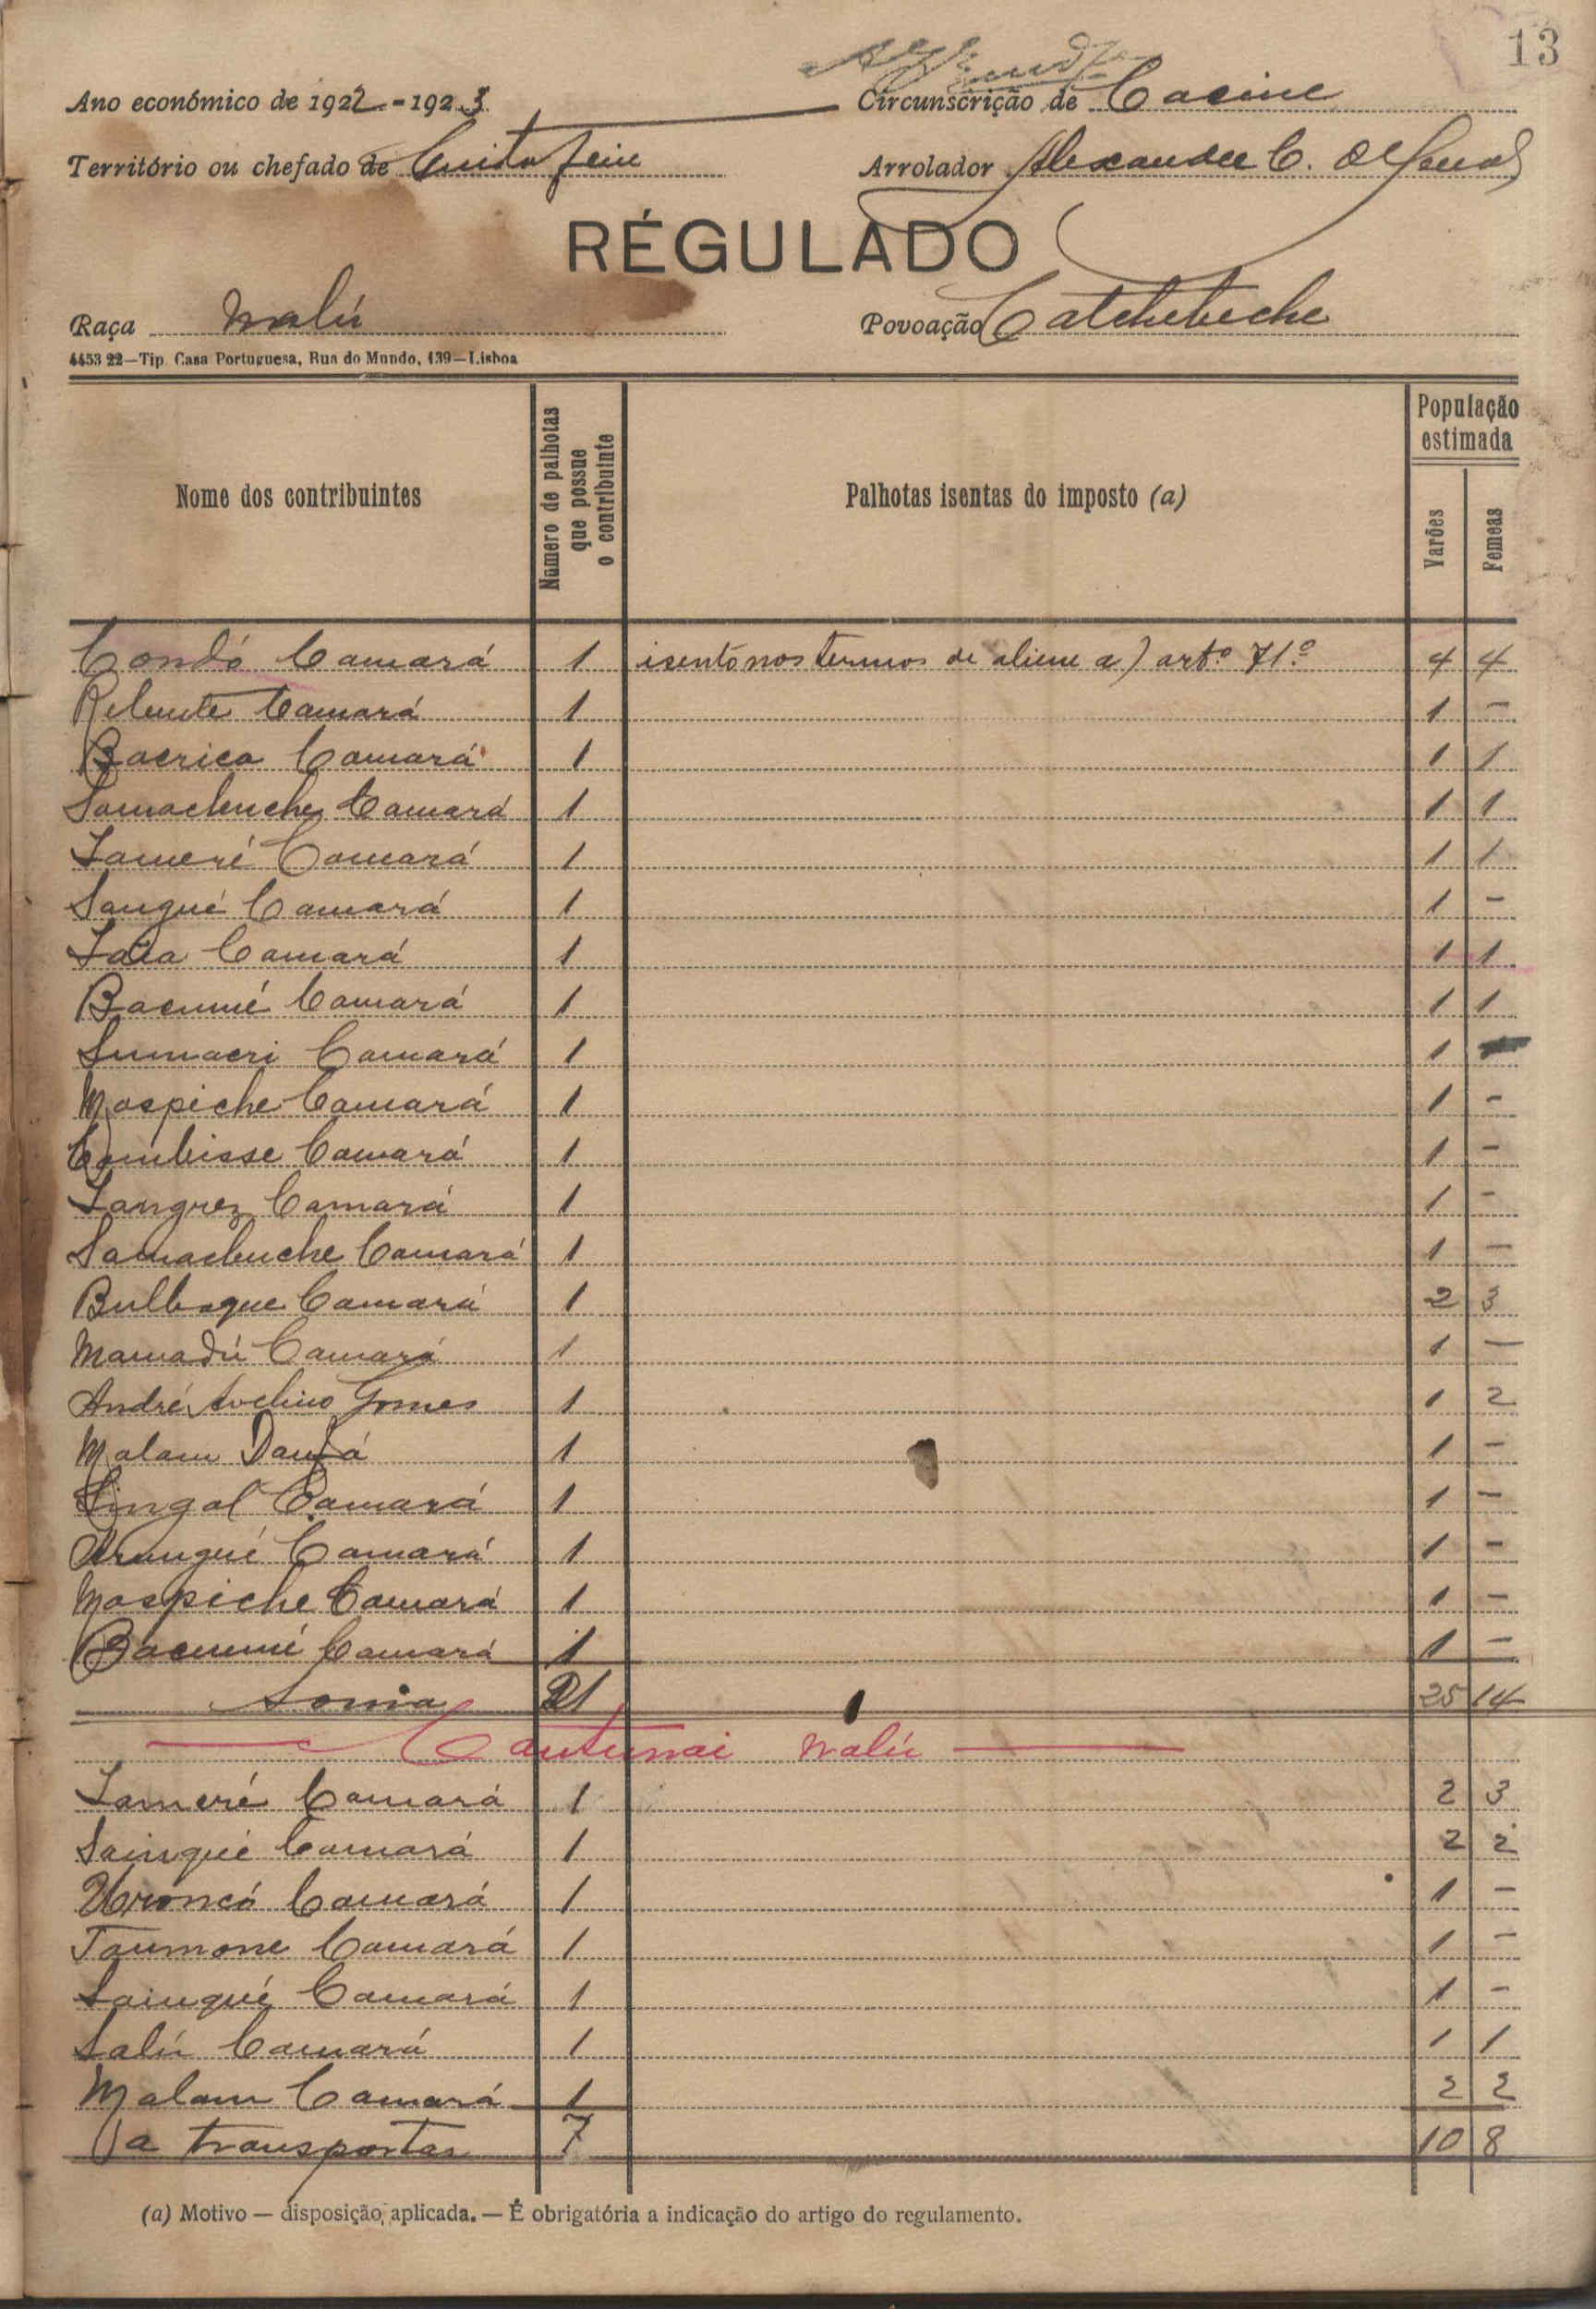 13
Ano económico de 1922-1923 Circunscrição de Cacine
Território ou chefado de Arrolador Alexandre C.
RÉGULADO
Raça Nalú Povoação Catchebeche
4453 22—Tip. Casa Portuguesa, Rua do Mundo, 139—Lisboa
Nome dos contribuintes Número de palhotas que possue o contribuinte Palhotas isentas do imposto (a) População estimada Varões Femeas
Condó Camará 1 isento nos termos de aliene a) artº 71º 4 4
Camará 1 1 -
Bacrica Camará 1 1 1
Camará 1 1 1
Lameré Camará 1 1 1
Sangué Camará 1 1 -
Laia Camará 1 1 1
Bacumé Camará 1 1 1
Sumacri Camará 1 1
Mospiche Camará 1 1 -
Combisse Camará 1 1 -
Langrez Camará 1 1 -
Camará 1 1 -
Bulbaque Camará 1 2 3
Mamadú Camará 1 1 —
André Avelino Gomes 1 1 2
Malam Danfá 1 1 -
Singal Camará 1 1 -
Camará 1 1 -
Mospiche Camará 1 1 -
Bacumé Camará 1 1 -
Soma 21 25 14
Cautumai Nalú
Lameré Camará 1 2 3
Saingué Camará 1 2 2
Camará 1 1 -
Toumone Camará 1 1 -
Saingué Camará 1 1 -
Salú Camará 1 1 1
Malam Camará 1 2 2
a transportar 7 10 8
(a) Motivo — disposição, aplicada. — É obrigatória a indicação do artigo do regulamento.